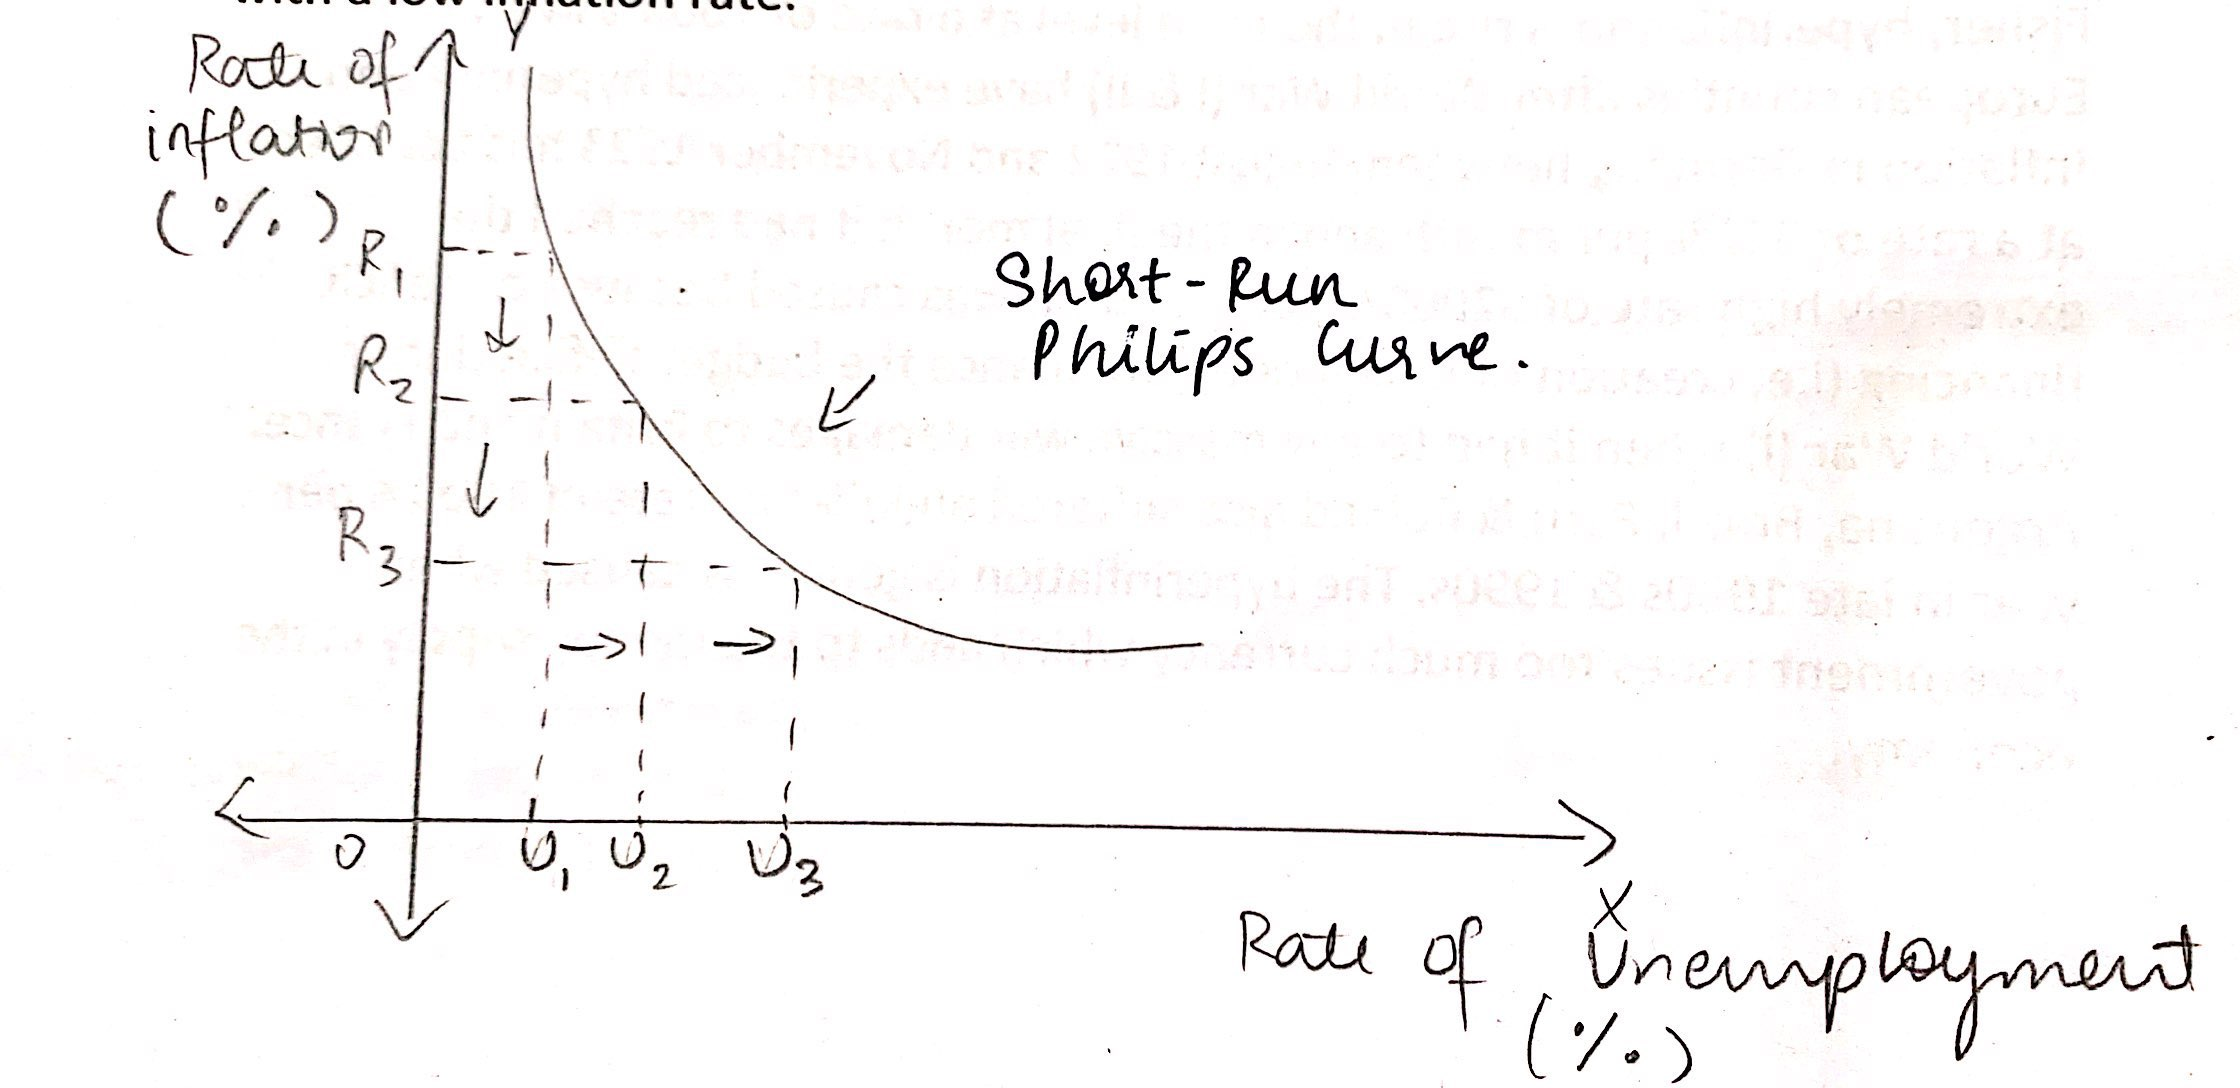 with a low inflation rate.
Y
Rate of
inflation
(%)
R1
R2
R3
Short-Run
Philips Curve.
0
U1 U2 U3
X
Rate of Unemployment
(%)